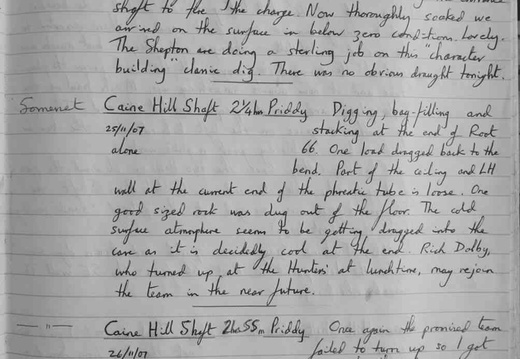 shaft to fire the charge. Now thoroughly soaked we
arrived on the surface in below zero conditions. Lovely.
The Shepton are doing a sterling job on this "character
building" classic dig. There was no obvious draught tonight.
Somerset Caine Hill Shaft 2¼hrs Priddy. Digging, bag-filling and
25/11/07 stacking at the end of Root
alone 66. One load dragged back to the
bend. Part of the ceiling and LH
wall at the current end of the phreatic tube is loose. One
good sized rock was dug out of the floor. The cold
surface atmosphere seems to be getting dragged into the
cave as it is decidedly cool at the end. Rich Dolby,
who turned up at the Hunters' at lunchtime, may rejoin
the team in the near future.
— " — Caine Hill Shaft 2hrs 55m Priddy Once again the promised team
26/11/07 failed to turn up so I got